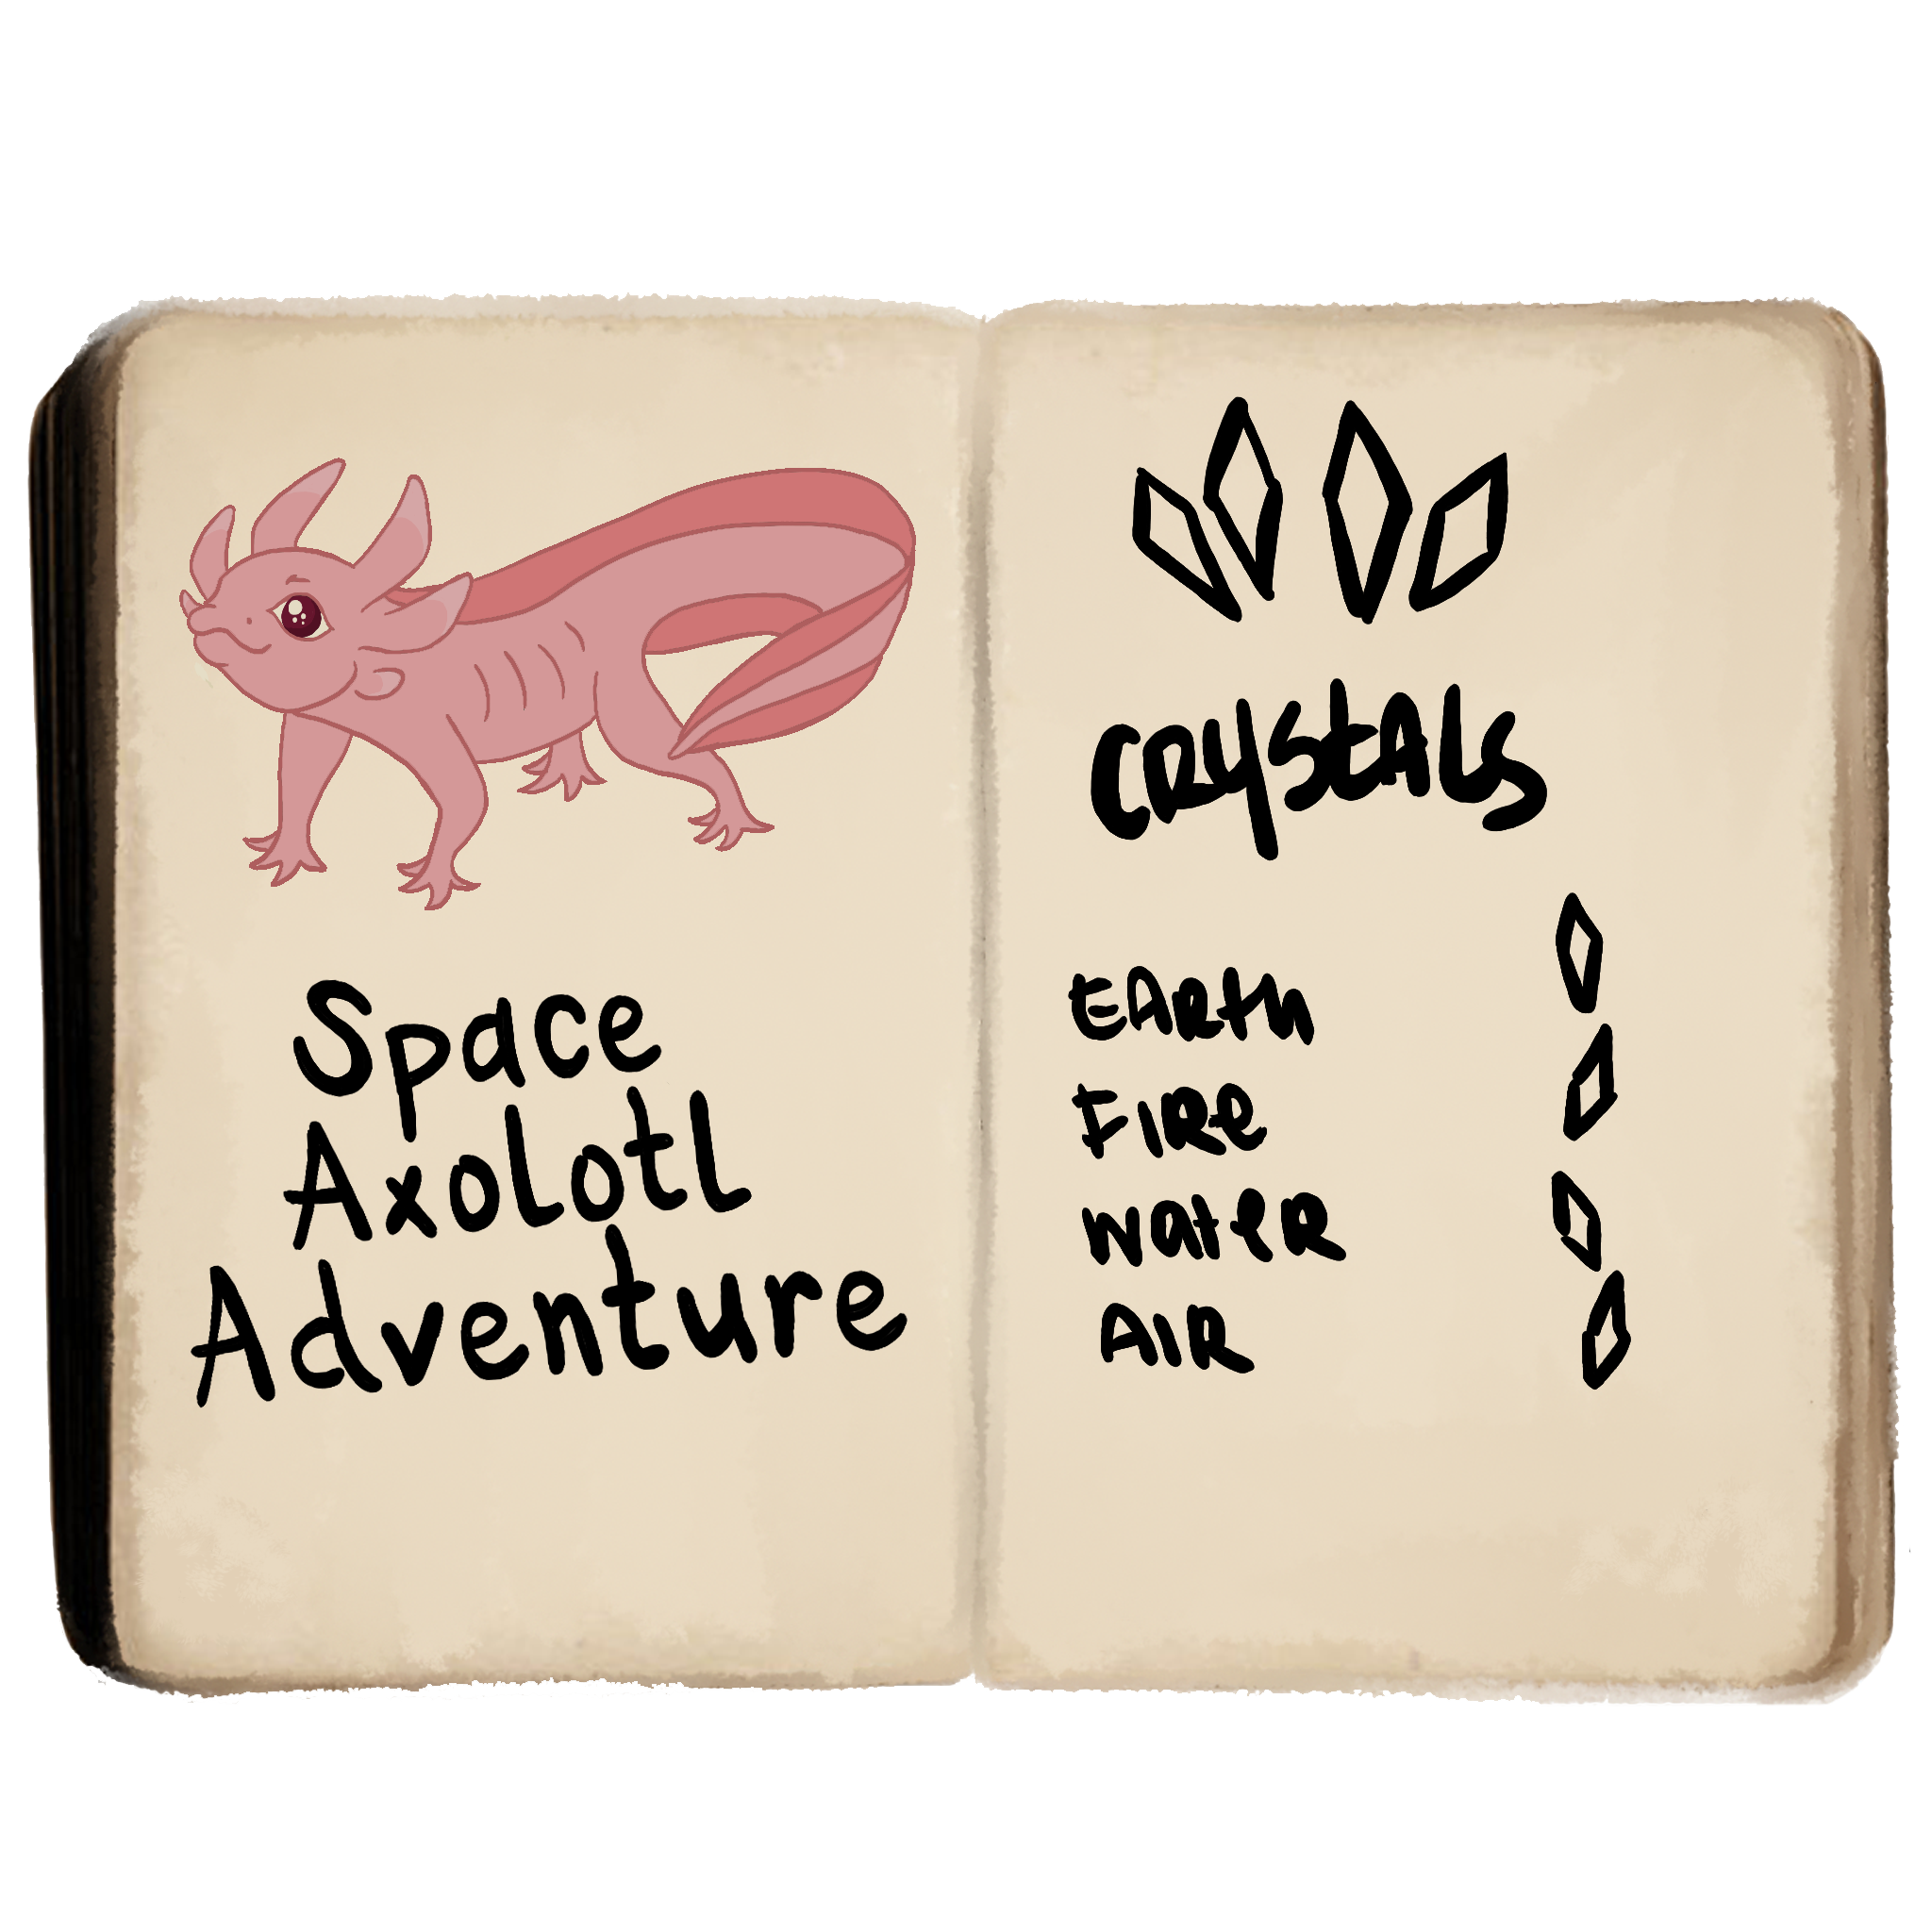 Space
Axolotl
Adventure
CRYStALS
EARth
FIRe
WateR
AIR